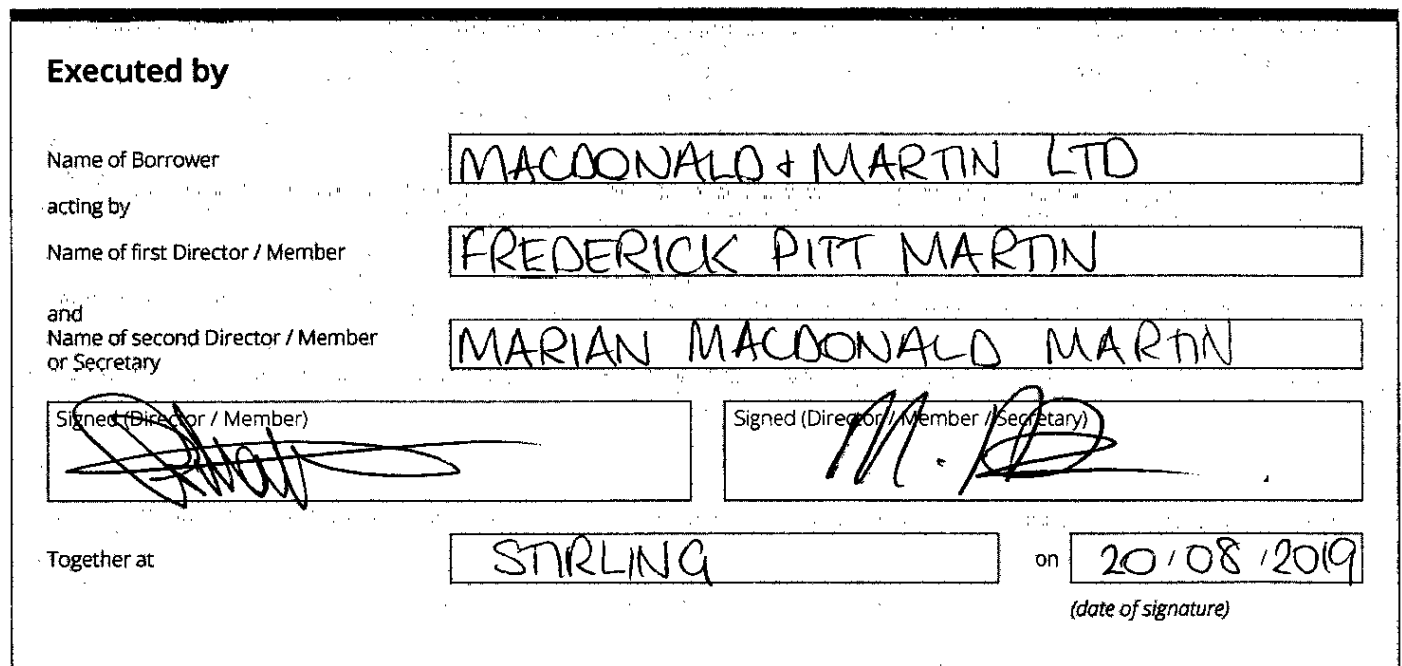 Executed by
Name of Borrower MACDONALD & MARTIN LTD
acting by
Name of first Director / Member FREDERICK PITT MARTIN
and
Name of second Director / Member
or Secretary MARIAN MACDONALD MARTIN
Signed (Director / Member) Signed (Director / Member / Secretary)
Together at STIRLING on 20/08/2019
(date of signature)